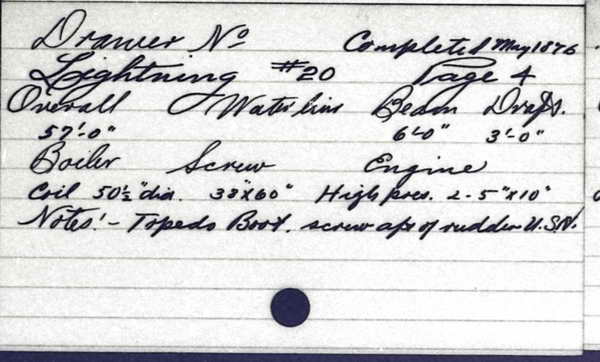 Drawer No Completed May 1876
Lightning #20 Page 4
Overall Waterline Beam Draft.
57'-0" 6'-0" 3'-0"
Boiler Screw Engine
Coil 50½" dia. 38"X60" High pres. 2-5"X10"
Notes:- Topedo Boat. screw aft of rudder U.S.N.